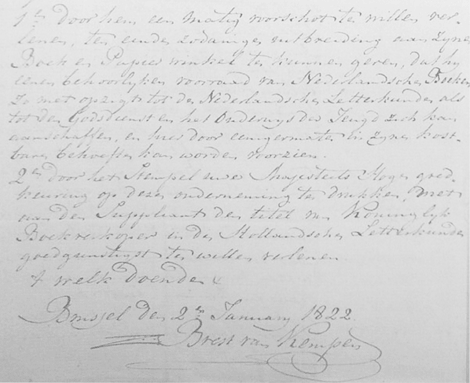 1o. door hem een matig voorschot te willen ver-
lenen, ten einde zodanige uitbreiding aan zyne
Boek en Papier winkel te kunnen geven, dat hy
eenen behoorlyken voorraad van Nederlandsche Boeken
zo met opzigt tot de Nederlandsche Letterkunde als
tot den Godsdienst en het Onderwys der Jeugd zich kan
aanschaffen, en hier door eenigermate in zyne kost-
bare behoeften kan worden voorzien.
2o. door het Stempel uwer Majesteits Hoge goed-
keuring op deze onderneming te drukken, met
aan den Suppliant den titel van Koninglyk
Boekverkoper in de Hollandsche Letterkunde
goedgunstigst te willen verlenen
't welk doende &
Brussel den 2n January 1822
Brest van Kempen